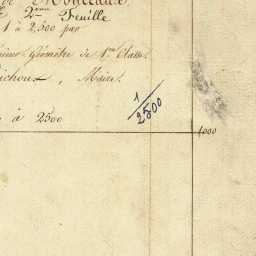 de Monceaux
2ème Feuille
1 à 2,500 par
Géomètre de 1ère Classe
, Maire.
1/2500
à 2500
1000